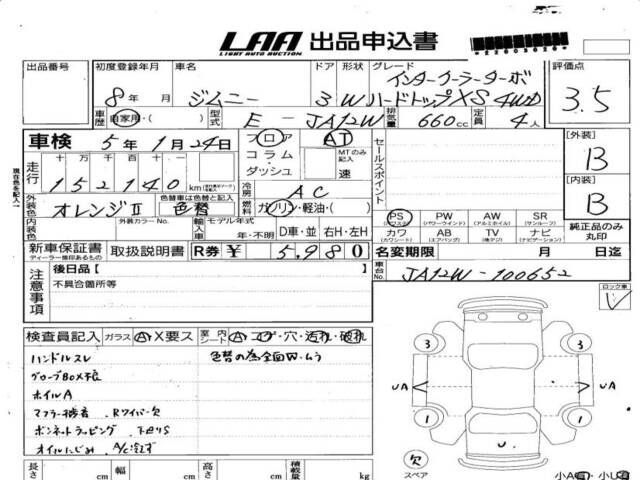 LAA 出品申込書
LIGHT AUTO AUCTION
出品番号 初度登録年月 車名 ドア 形状 グレード 評価点
8年 月 ジムニー 3 W インタークーラーターボ ハードトップXS 4WD 3.5
車歴 自家用・( ) 型式 E-JA12W 排気量 660cc 定員 4人
車検 5年1月24日 フロア コラム・ダッシュ AT MTのみ記入 速 セールスポイント [外装] B
走行 十万 万 千 百 十 152140 km 冷房 AC [内装] B
外装色 オレンジⅡ 色替車は色替と記入 色替 燃料 ガソリン・軽油・( )
PS (パワステ) PW (パワーウインドー) AW (アルミホイル) SR (サンルーフ) 純正品のみ丸印
内装色 外装カラーNo. 輸入車 モデル年式 年・不明 D車・並 右H・左H カワ (カワシート) AB (エアバッグ) TV (地デジ) ナビ (ナビゲーション)
新車保証書 ディーラー捺印あるもの 取扱説明書 R券 ¥ 5,980 名変期限 月 日迄
注意事項 後日品[ ] 車台No. JA12W-100652
不具合箇所等 ロック車
検査員記入 ガラス A・X要ス 室内 シート A・コゲ・穴・汚れ・破れ
ハンドルスレ 色替の為全面W・ムラ
グローブBOX不良
ホイルA
マフラー Rワイパー欠
ボンネットラッピング 下回りS
オイルにじみ A/C冷えず
3 3
UA UA
1 1
U
欠
スペア 小A 小U
長さ cm 幅 cm 高さ cm 積載量 kg
現在色を記入